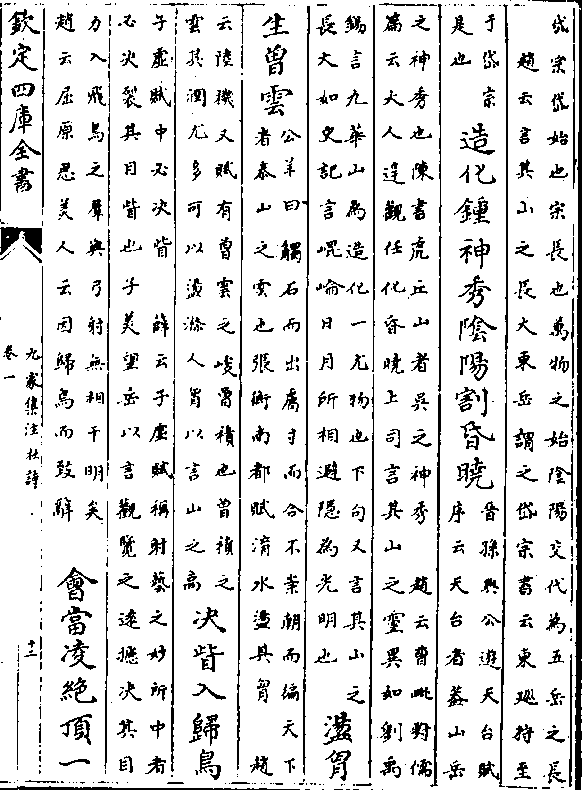 岱宗岱始也宗長也萬物之始陰陽交代為五岳之長
趙云言其山之長大東岳謂之岱宗書云東巡狩至
于岱宗
是也
造化鍾神秀陰陽割昏曉
晉孫興公遊天台賦
序云天台者蓋山岳
之神秀也陳書虎丘山者吳之神秀 趙云晋此對儒
篇云大人達觀任化昏曉上司言其山之靈異如劉禹
錫言九華山為造化一尤物也下句又言其山之
長大如史記言崐崘日月所相避隱為光明也
盪胷
生曾雲
公羊曰觸石而出膚寸而合不崇朝而徧天下
者泰山之雲也張衡南都賦淯水盪其胷 趙
云陸機文賦有曾雲之峻曾積也曾積之
雲其潤尤多可以盪滌人胷以言山之高
决眥入歸鳥
子虛賦中必决眥 薛云子虛賦稱射藝之妙所中者
必决裂其目眥也子美望岳以言觀覽之遠摅决其目
力入飛鳥之羣與弓射無相干明矣
趙云屈原思美人云因歸鳥而致辭
會當凌絕頂一
欽定四庫全書
九家集注杜詩
卷一
十二